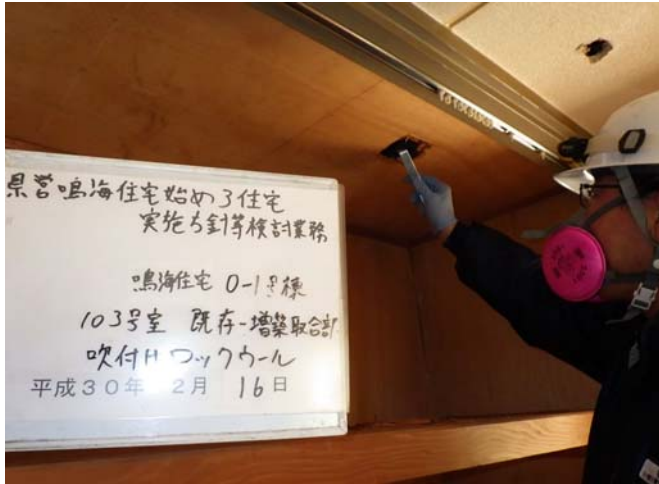 県営鳴海住宅始め3住宅
実施方針等検討業務
鳴海住宅 0-1号棟
103号室 既存-増築取合部
吹付けロックウール
平成30年 2月 16日